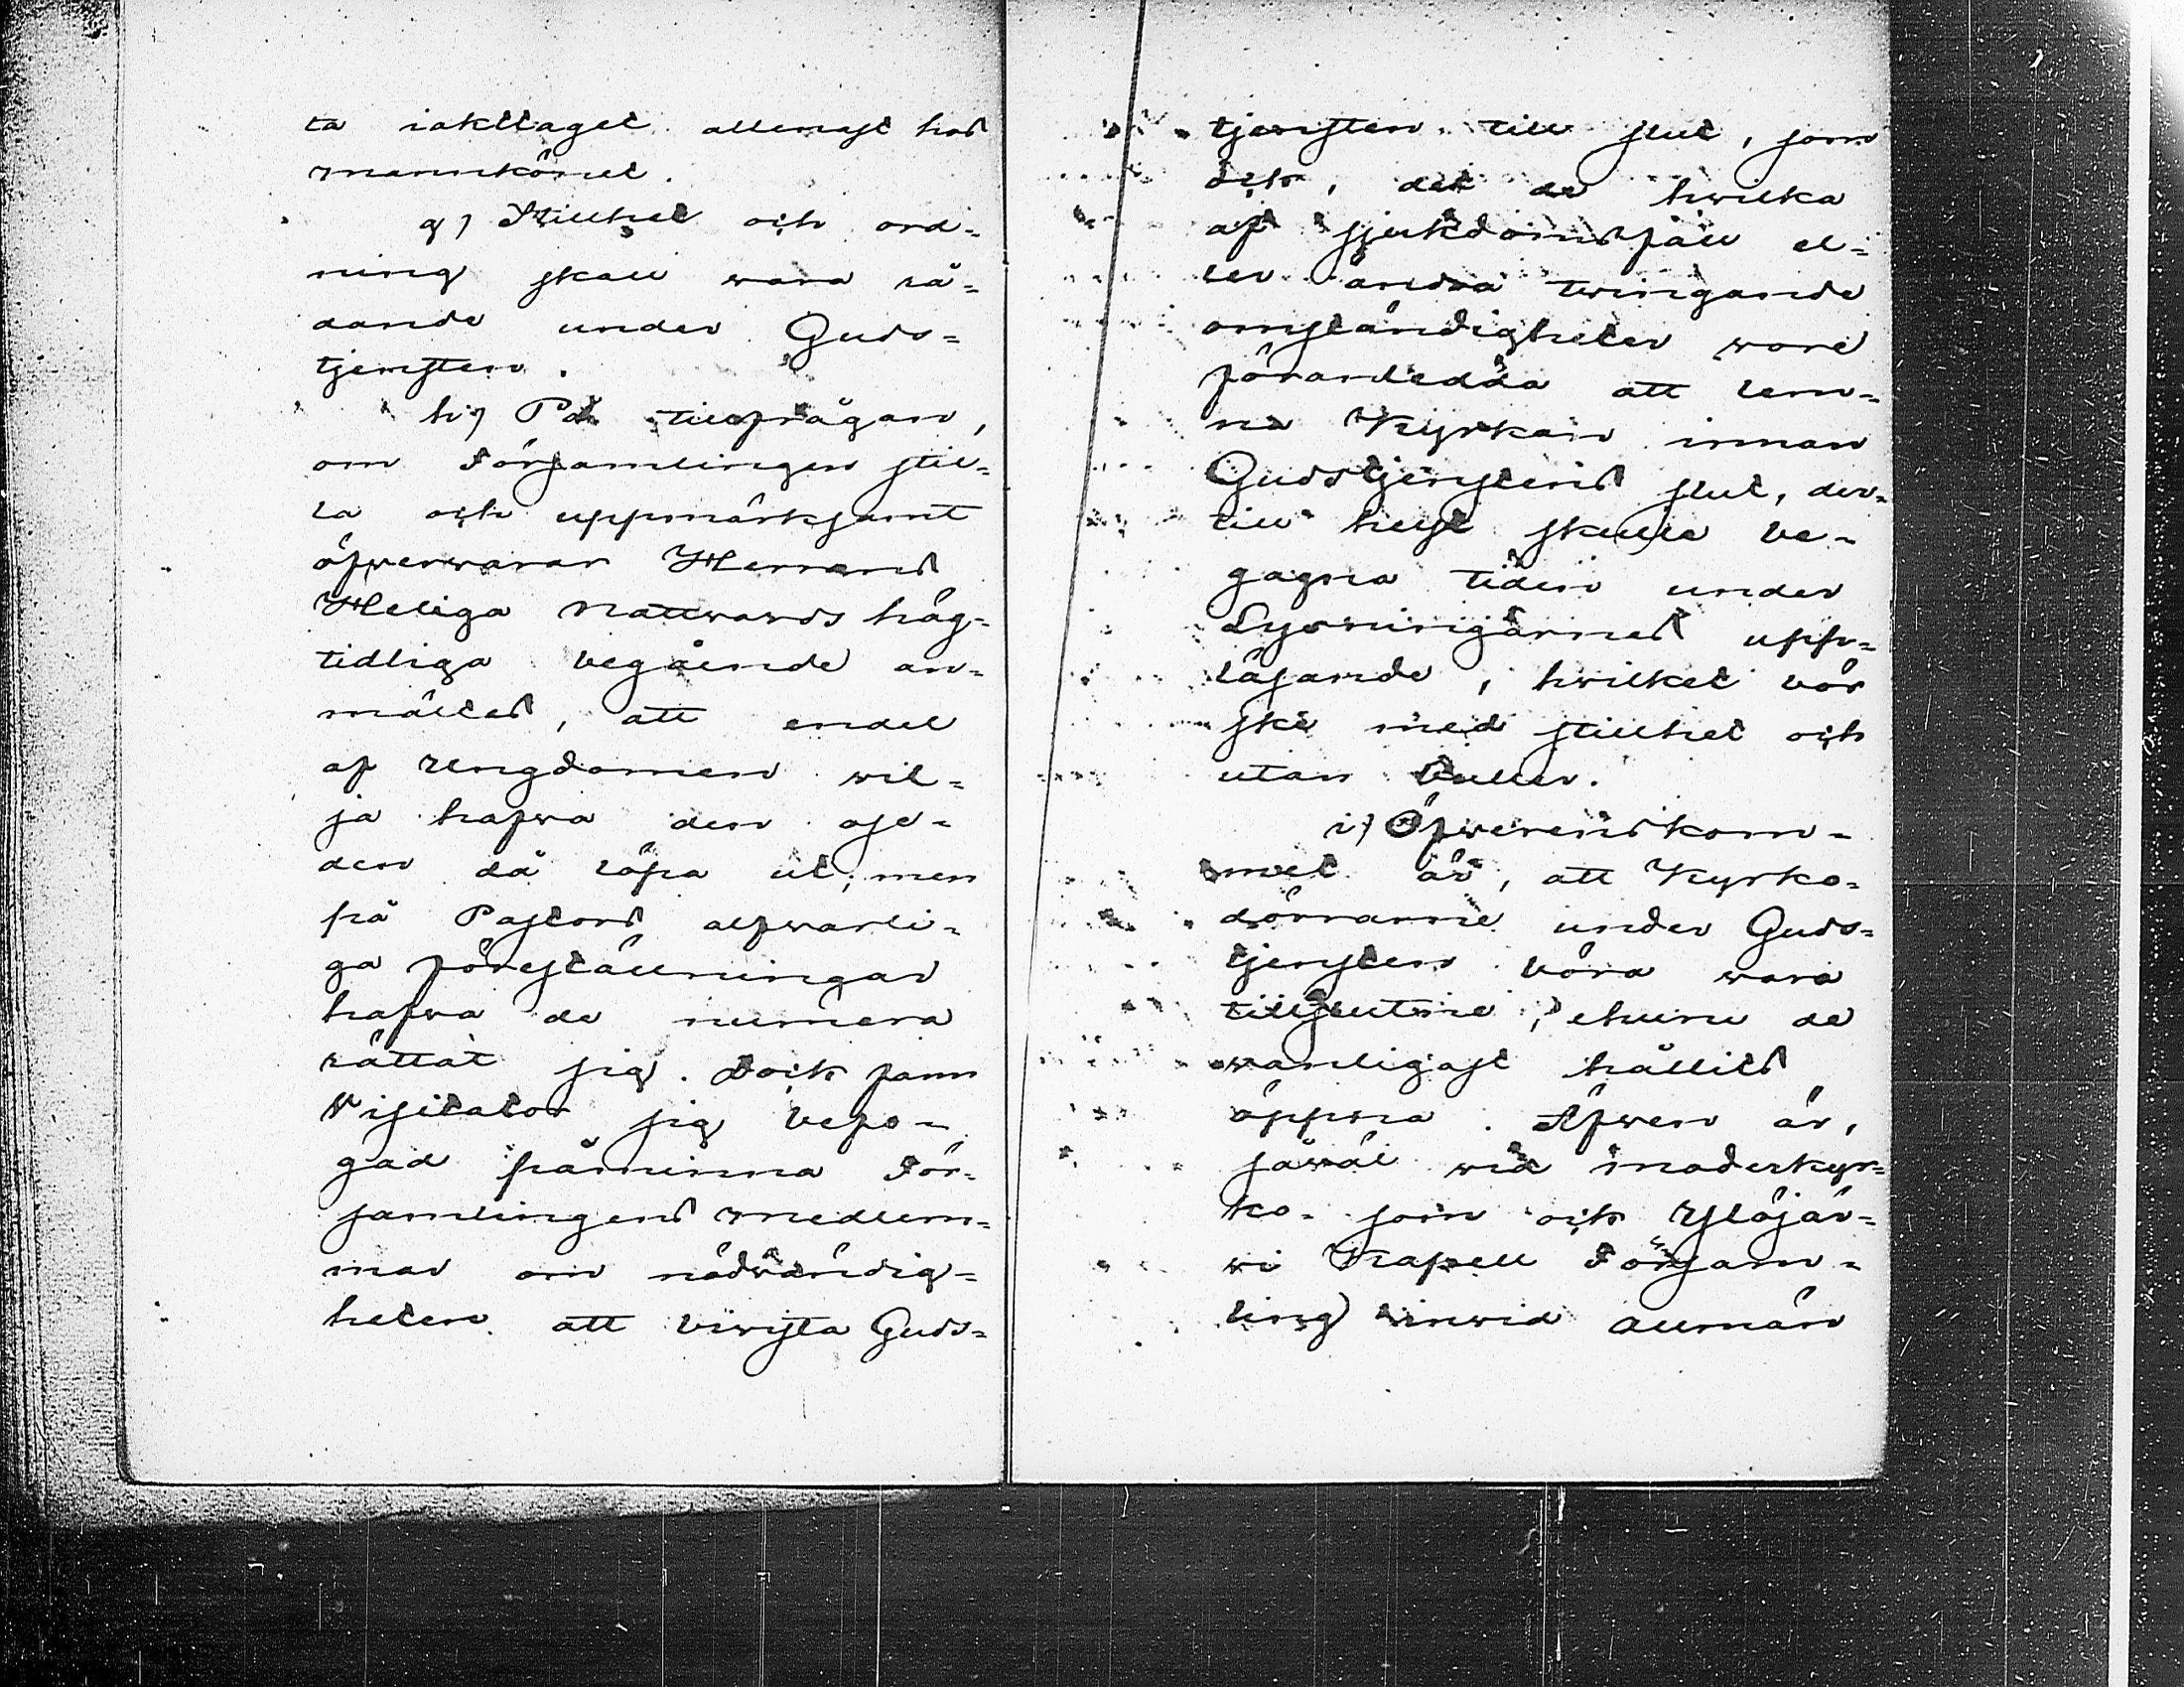 ta iakttaget allenast hos
mannkönet.
g) Stillhet och ord-
ning skall wara rå-
dande under Guds-
tjensten.
h) På tillfrågan,
om Församlingen stil-
la och uppmärksamt
öfwerwarar Herrans
Heliga Nattwards hög-
tidliga begående an-
mältes, att endel
af Ungdomen wil-
ja hafwa den ose-
den då löpa ut; men
på Pastors alfwarli-
ga föreställningar
hafwa de numera
rättat sig. Dock fann
Visitator sig befo-
gad påminna För-
samlingens medlem-
mar om nödwändig-
heten att biwista Guds-
tjensten till slut, som
ock, det de hwilka
af sjukdomsfall el-
ler andra twingande
omständigheter wore
föranledda att lem-
na Kyrkan innan
Gudstjenstens slut, der-
till helst skulle be-
gagna tiden under
Lysningarnes upp-
läsande, hwilket bör
ske med stillhet och
utan buller.
i) Öfwerenskom-
met är, att Kyrko-
dörrarne under Guds-
tjensten böra wara
tillslutne, ehuru de
wanligast hållits
öppna. Äfwen är,
såwäl wid moderkyr-
ko- som ock Ylöjär-
wi Kapell Försam-
ling) allmän